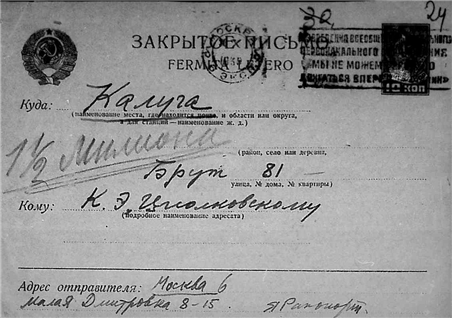 За 24
МОСКВА
ЗАКРЫТОЕ ПИСЬМО
FERMITA LETERO
БЕЗ ВВЕДЕНИЯ ВСЕОБЩЕГО
ПЕРВОНАЧАЛЬНОГО
"МЫ НЕ МОЖЕМ
ДВИГАТЬСЯ ВПЕРЕД
10 КОП
Куда: Калуга
(наименование места, где находится почта, и области или округа,
а для станций—наименование ж. д.)
1½ Милиона
(район, село или деревня,
Брут 81
улица, № дома, № квартиры)
Кому: К. Э. Циолковскому
(подробное наименование адресата)
Адрес отправителя: Москва 6
Малая Дмитровка 8-15. Я Рапопорт.